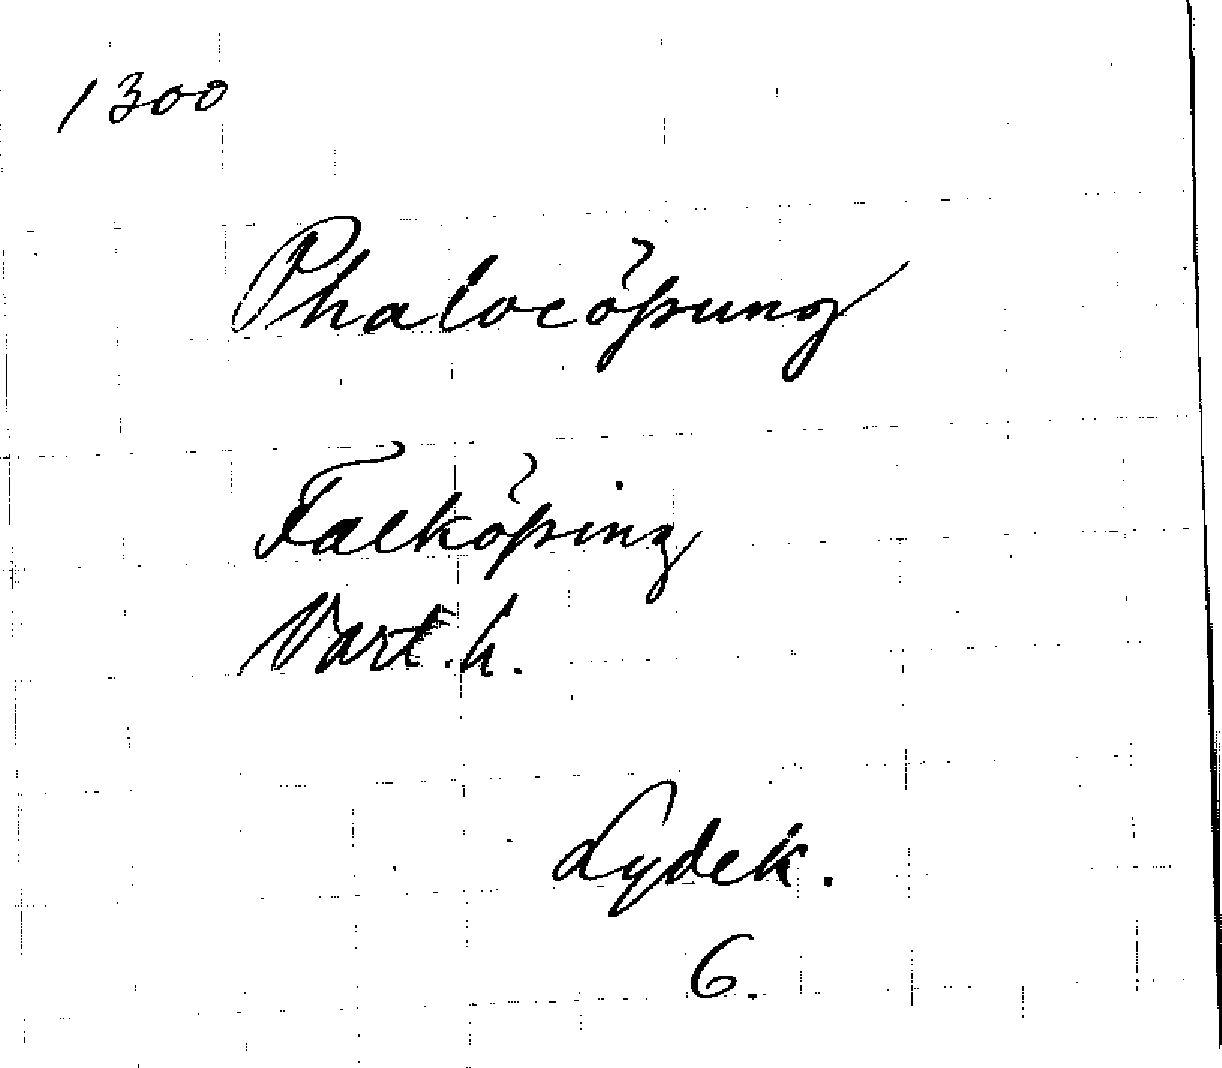 1300
Phalocöpung
Falköping
Vart. h.
Lydek.
6.